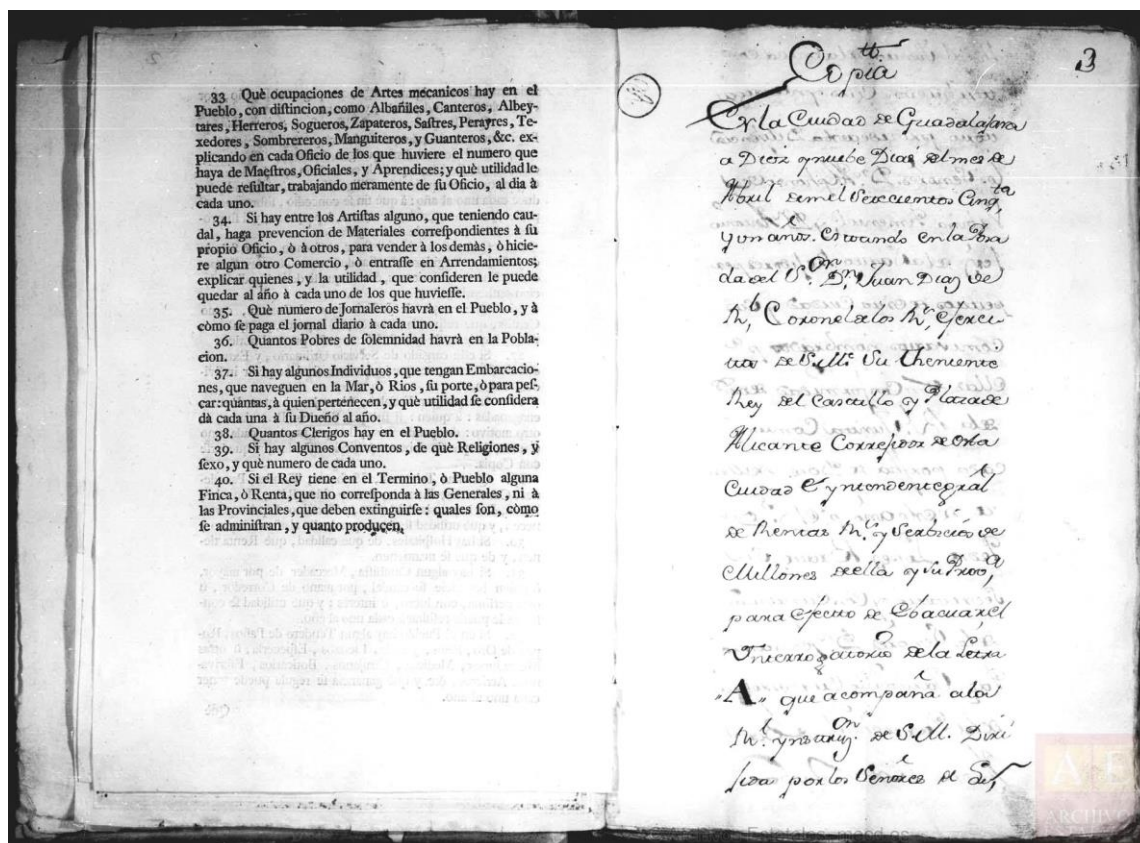 33 Què ocupaciones de Artes mecanicos hay en el
Pueblo, con distincion, como Albañiles, Canteros, Albey-
tares, Herreros, Sogueros, Zapateros, Sastres, Perayres, Te-
xedores, Sombrereros, Manguiteros, y Guanteros, &c. ex-
plicando en cada Oficio de los que huviere el numero que
haya de Maestros, Oficiales, y Aprendices; y què utilidad le
puede resultar, trabajando meramente de su Oficio, al dia à
cada uno.
34. Si hay entre los Artistas alguno, que teniendo cau-
dal, haga prevencion de Materiales correspondientes à su
propio Oficio, ò à otros, para vender à los demàs, ò hicie-
re algun otro Comercio, ò entrasse en Arrendamientos;
explicar quienes, y la utilidad, que consideren le puede
quedar al año à cada uno de los que huviesse.
35. Què numero de Jornaleros havrà en el Pueblo, y à
còmo se paga el jornal diario à cada uno.
36. Quantos Pobres de solemnidad havrà en la Pobla-
cion.
37. Si hay algunos Individuos, que tengan Embarcacio-
nes, que naveguen en la Mar, ò Rios, su porte, ò para pes-
car: quantas, à quien pertenecen, y què utilidad se considera
dà cada una à su Dueño al año.
38. Quantos Clerigos hay en el Pueblo.
39. Si hay algunos Conventos, de què Religiones, y
sexo, y què numero de cada uno.
40. Si el Rey tiene en el Termino, ò Pueblo alguna
Finca, ò Renta, que no corresponda à las Generales, ni à
las Provinciales, que deben extinguirse: quales son, còmo
se administran, y quanto producen.
3
Copia
En la Ciudad de Guadalajara
a Diez y nuebe Dias del mes de
Abril de mil Setecientos Cinqta
y un años. Estando en la Posa
da del Sor Dn Juan Diaz de
Rl Coronel de los Rs Exerci
tos de S.M. Su Theniente
Rey del Castillo y Plaza de
Alicante Correjidor de esta
Ciudad e yntendente gral
de Rentas Rs y Serbicios de
Millones de ella y su Prova
para efecto de Ebacuar el
Interrogatorio de la Letra
"A" que acompaña a la
Rl ynstruzon de S.M. Diri
jida por los Señores de
ARCHIVO